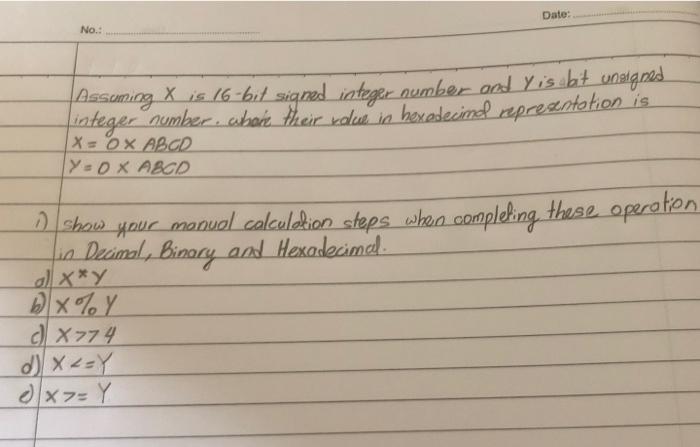 Date:
No.:
Assuming X is 16-bit signed integer number and Y is bit unsigned
integer number. where their value in hexadecimal representation is
X = 0X ABCD
Y = 0 X ABCD
i) show your manual calculation steps when completing these operation
in Decimal, Binary and Hexadecimal.
a) X**Y
b) X % Y
c) X >> 4
d) X <= Y
e) X >= Y